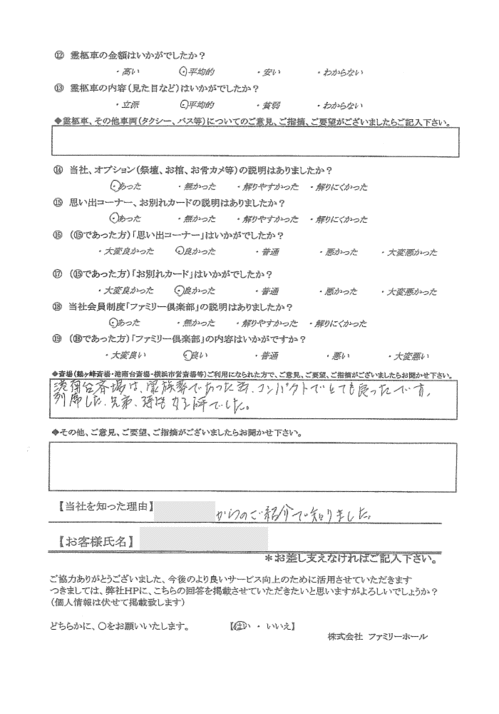 ⑫ 霊柩車の金額はいかがでしたか？
・高い ・平均的 ・安い ・わからない
⑬ 霊柩車の内容（見た目など）はいかがでしたか？
・立派 ・平均的 ・貧弱 ・わからない
◆霊柩車、その他車両（タクシー、バス等）についてのご意見、ご指摘、ご要望がございましたらご記入下さい。
⑭ 当社、オプション（祭壇、お棺、お骨カメ等）の説明はありましたか？
・あった ・無かった ・解りやすかった ・解りにくかった
⑮ 思い出コーナー、お別れカードの説明はありましたか？
・あった ・無かった ・解りやすかった ・解りにくかった
⑯ （⑮であった方）「思い出コーナー」はいかがでしたか？
・大変良かった ・良かった ・普通 ・悪かった ・大変悪かった
⑰ （⑮であった方）「お別れカード」はいかがでしたか？
・大変良かった ・良かった ・普通 ・悪かった ・大変悪かった
⑱ 当社会員制度「ファミリー倶楽部」の説明はありましたか？
・あった ・無かった ・解りやすかった ・解りにくかった
⑲ （⑱であった方）「ファミリー倶楽部」の内容はいかがですか？
・大変良い ・良い ・普通 ・悪い ・大変悪い
◆斎場（鶴ヶ峰斎場・湘南台斎場・横浜市営斎場等）ご利用になられた方で、ご意見、ご要望、ご指摘がございましたらお聞かせ下さい。
斎場は、家族葬であった為、コンパクトでとても良かったです。
列席した、兄弟、好評でした。
◆その他、ご意見、ご要望、ご指摘がございましたらお聞かせ下さい。
【当社を知った理由】 からのご紹介で知りました。
【お客様氏名】
＊お差し支えなければご記入下さい。
ご協力ありがとうございました、今後のより良いサービス向上のために活用させていただきます
つきましては、弊社HPに、こちらの回答を掲載させていただきたいと思いますがよろしいでしょうか？
（個人情報は伏せて掲載致します）
どちらかに、○をお願いいたします。 【はい ・ いいえ】
株式会社 ファミリーホール